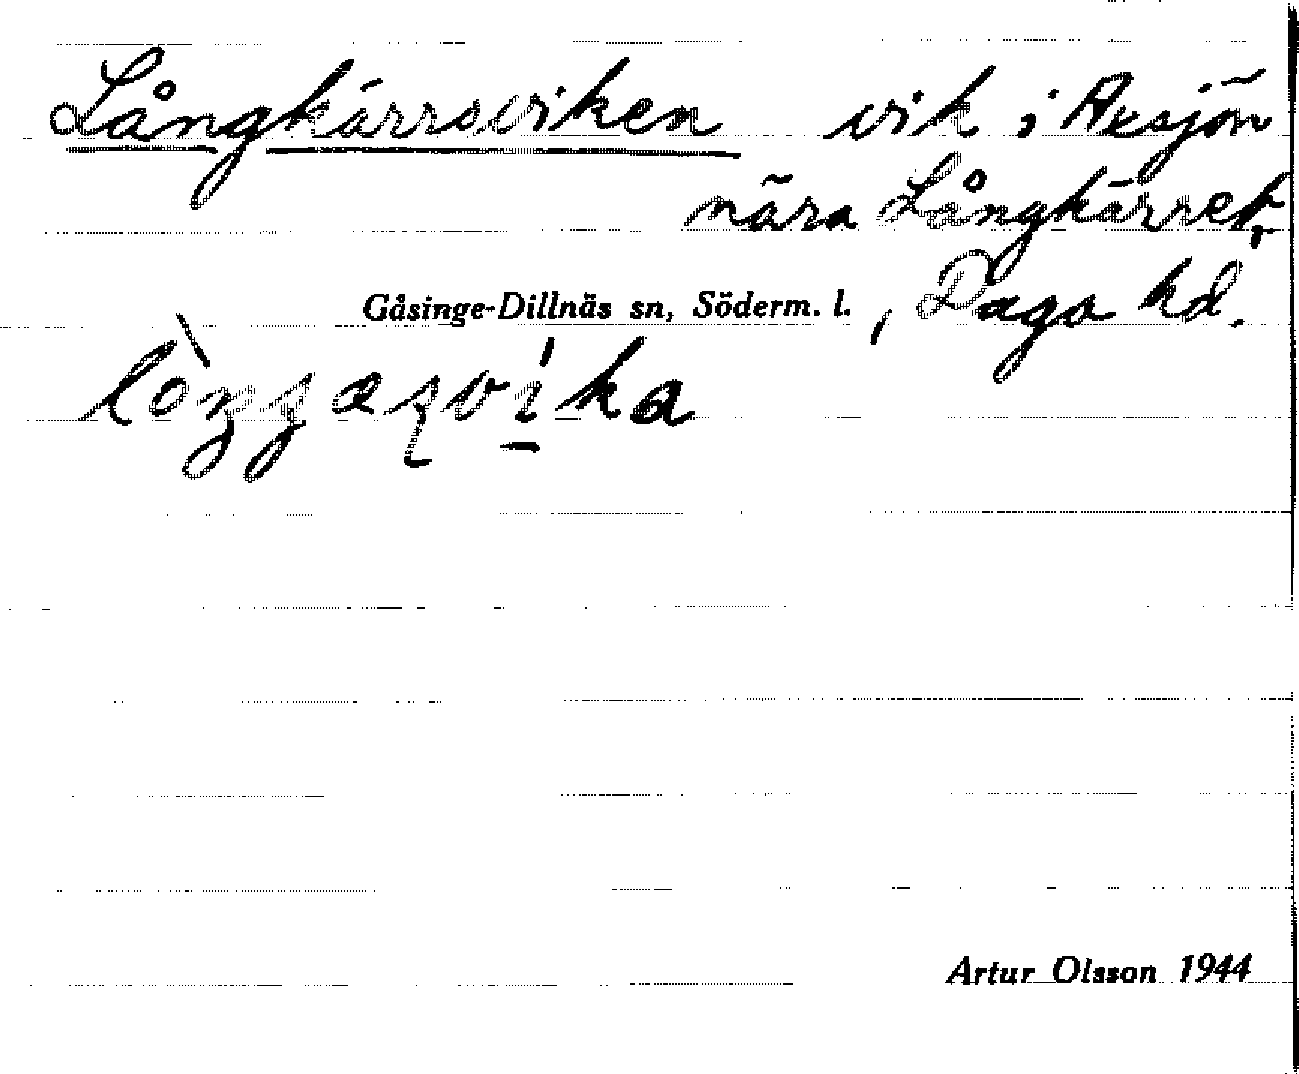 Långkärrsviken vik i Axsjön
nära Långkärret,
Gåsinge-Dillnäs sn, Söderm. l., Daga hd.
Artur Olsson 1944